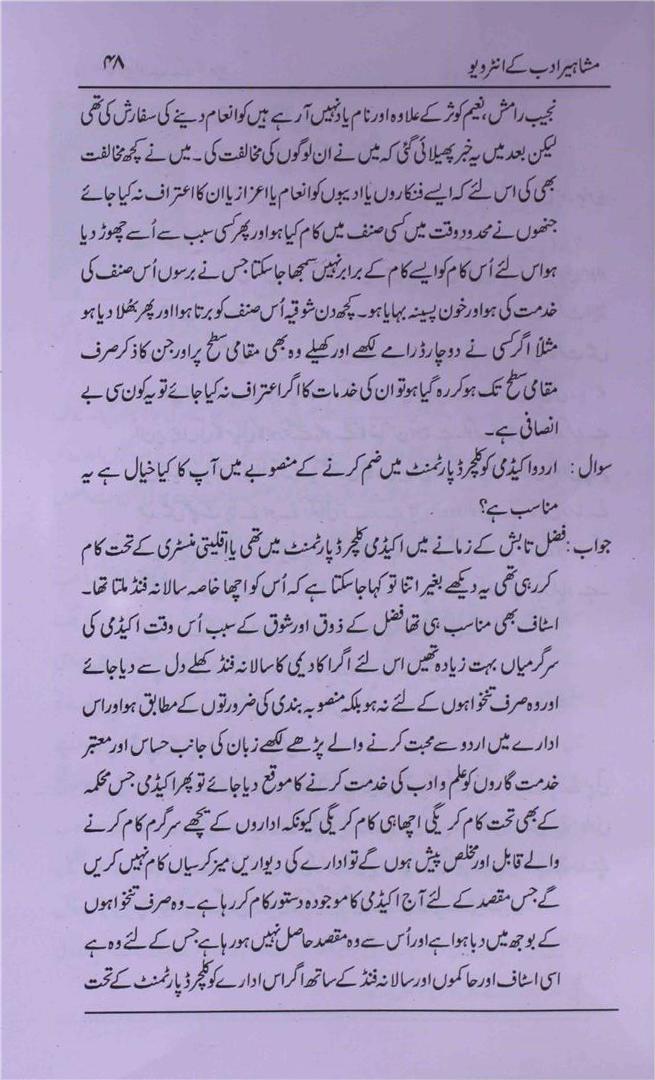 مشاہیر ادب کے انٹرویو ۴۸
نجیب رامش، نعیم کوثر کے علاوہ اور نام یاد نہیں آ رہے ہیں کو انعام دینے کی سفارش کی تھی
لیکن بعد میں یہ خبر پھیلائی گئی کہ میں نے ان لوگوں کی مخالفت کی۔ میں نے کچھ مخالفت
بھی کی اس لئے کہ ایسے فنکاروں یا ادیبوں کو انعام یا اعزاز یا ان کا اعتراف نہ کیا جائے
جنھوں نے محدود وقت میں کسی صنف میں کام کیا ہو اور پھر کسی سبب سے اُسے چھوڑ دیا
ہو اس لئے اُس کام کو ایسے کام کے برابر نہیں سمجھا جا سکتا جس نے برسوں اُس صنف کی
خدمت کی ہو اور خون پسینہ بہایا ہو۔ کچھ دن شوقیہ اُس صنف کو برتا ہو ااور پھر بھُلا دیا ہو
مثلاً اگر کسی نے دو چار ڈرامے لکھے اور کھیلے وہ بھی مقامی سطح پر اور جن کا ذکر صرف
مقامی سطح تک ہو کر رہ گیا ہو تو ان کی خدمات کا اگر اعتراف نہ کیا جائے تو یہ کون سی بے
انصافی ہے۔
سوال: اردو اکیڈمی کو کلچر ڈپارٹمنٹ میں ضم کرنے کے منصوبے میں آپ کا کیا خیال ہے یہ
مناسب ہے؟
جواب: فضل تابش کے زمانے میں اکیڈمی کلچر ڈپارٹمنٹ میں تھی یا اقلیتی منسٹری کے تحت کام
کر رہی تھی یہ دیکھے بغیر اتنا تو کہا جا سکتا ہے کہ اُس کو اچھا خاصہ سالانہ فنڈ ملتا تھا۔
اسٹاف بھی مناسب ہی تھا فضل کے ذوق اور شوق کے سبب اُس وقت اکیڈمی کی
سرگرمیاں بہت زیادہ تھیں اس لئے اگر اکادیمی کا سالانہ فنڈ کھلے دل سے دیا جائے
اور وہ صرف تنخواہوں کے لئے نہ ہو بلکہ منصوبہ بندی کی ضرورتوں کے مطابق ہو اور اس
ادارے میں اردو سے محبت کرنے والے پڑھے لکھے زبان کی جانب حساس اور معتبر
خدمت گاروں کو علم و ادب کی خدمت کرنے کا موقع دیا جائے تو پھر اکیڈمی جس محکمہ
کے بھی تحت کام کریگی اچھا ہی کام کریگی کیونکہ اداروں کے پیچھے سرگرم کام کرنے
والے قابل اور مخلص پیش ہوں گے تو ادارے کی دیواریں میز کرسیاں کام نہیں کریں
گے جس مقصد کے لئے آج اکیڈمی کا موجودہ دستور کام کر رہا ہے۔ وہ صرف تنخواہوں
کے بوجھ میں دبا ہوا ہے اور اُس سے وہ مقصد حاصل نہیں ہو رہا ہے جس کے لئے وہ ہے
اسی اسٹاف اور حاکموں اور سالانہ فنڈ کے ساتھ اگر اس ادارے کو کلچر ڈپارٹمنٹ کے تحت